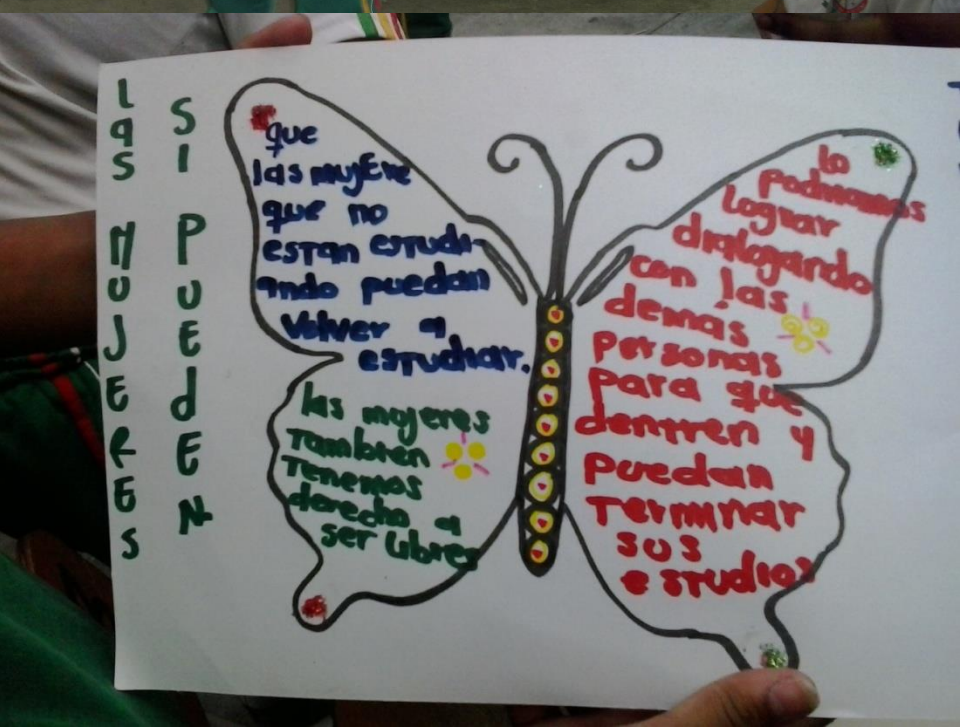 Las MUJERES
SI PUEdEN
que
las mujere
que no
estan estudi-
ando puedan
Volver a
estudiar.
las mojeres
También
Tenemos
derecho a
ser libres
lo
podriamos
Lograr
dialogando
con las
demas
personas
para que
dentren y
puedan
Terminar
sus
estudios